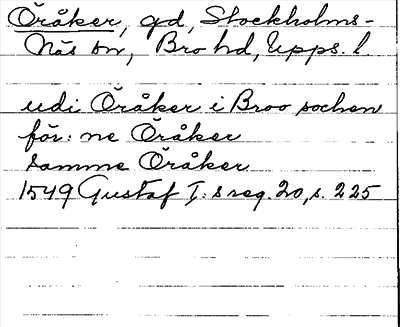 Öråker, gd, Stockholms-
Näs sn, Bro hd, Upps. l.
udi Öråker i Broo sochen
för: ne Öråker
samme Öråker
1549 Gustaf I:s reg. 20, s. 225